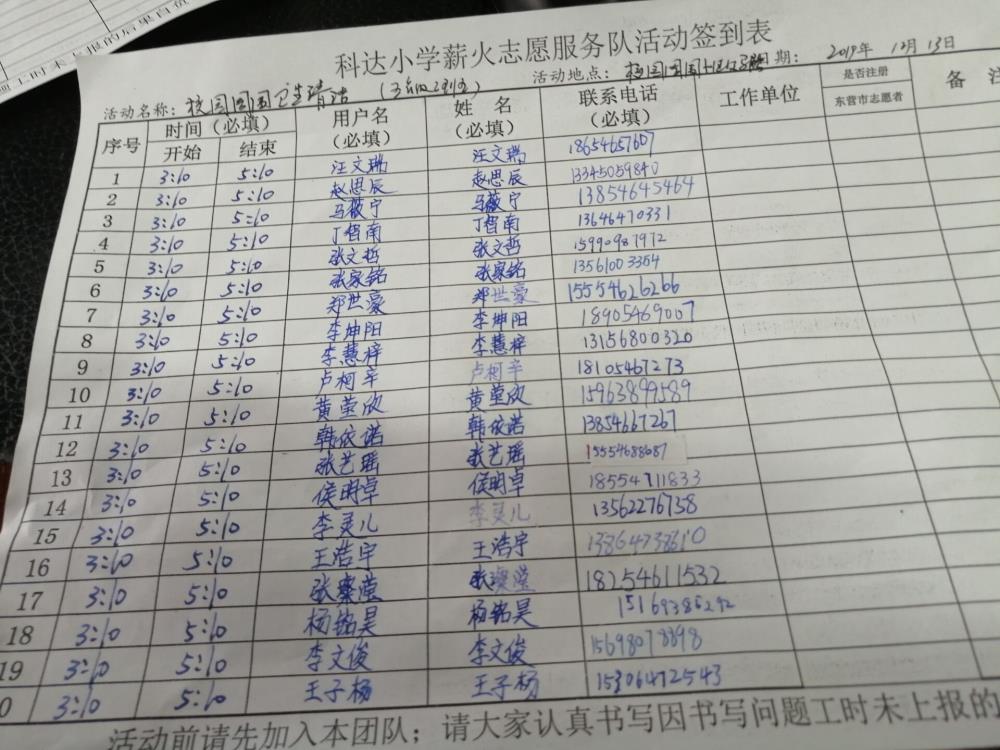 科达小学薪火志愿服务队活动签到表
活动名称：校园周围卫生清洁 活动地点：校园周围 期：2019年12月13日
序号 时间（必填） 用户名（必填） 姓名（必填） 联系电话（必填） 工作单位 是否注册东营市志愿者 备
开始 结束
1 3:10 5:10 汪文瑞 汪文瑞 18654657607
2 3:10 5:10 赵思辰 赵思辰 13345059840
3 3:10 5:10 马薇宁 马薇宁 13854645464
4 3:10 5:10 丁智南 丁智南 13646470331
5 3:10 5:10 张文哲 张文哲 15990987972
6 3:10 5:10 张家铭 张家铭 13561003354
7 3:10 5:10 郑世豪 郑世豪 15554626266
8 3:10 5:10 李坤阳 李坤阳 18905469007
9 3:10 5:10 李慧梓 李慧梓 13156800320
10 3:10 5:10 卢柯辛 卢柯辛 18105467273
11 3:10 5:10 黄莹欣 黄莹欣 15963899589
12 3:10 5:10 韩依诺 韩依诺 13854667267
13 3:10 5:10 张艺瑶 张艺瑶 15554688687
14 3:10 5:10 侯明卓 侯明卓 18554711833
15 3:10 5:10 李灵儿 李灵儿 13562276758
16 3:10 5:10 王浩宇 王浩宇
17 3:10 5:10 18254611532
18 3:10 5:10 杨铭昊 杨铭昊 15169386292
19 3:10 5:10 李文俊 李文俊 15698078898
0 3:10 5:10 王子杨 王子杨 15306472543
活动前请先加入本团队；请大家认真书写因书写问题工时未上报的